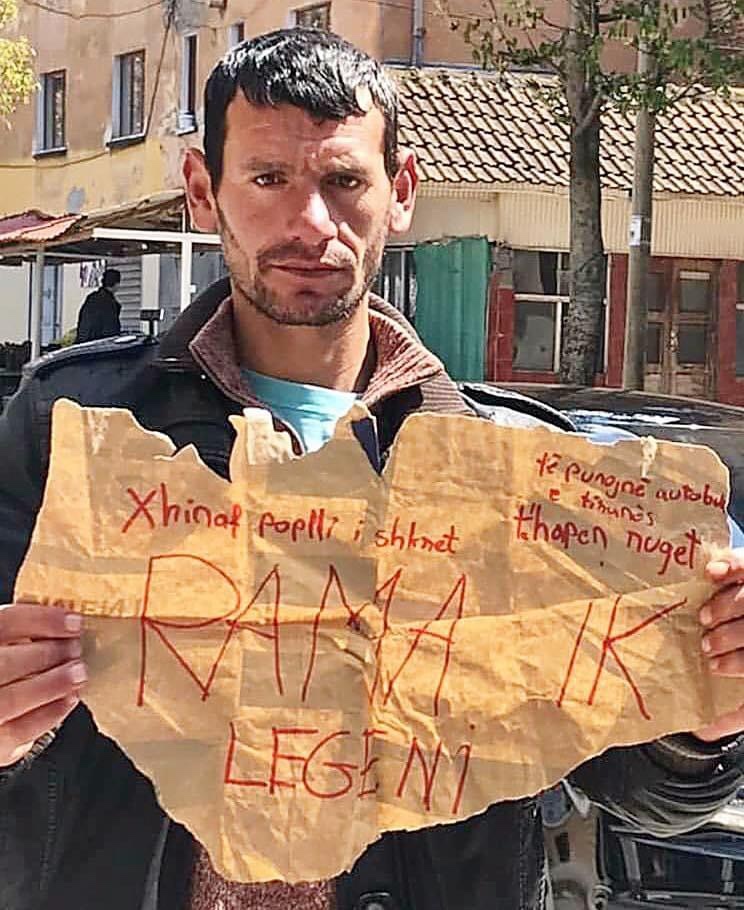 Xhinat poplli i shknet
të punojnë autobus
e tiranës
thapen ruget
RAMA IK
LEGENI